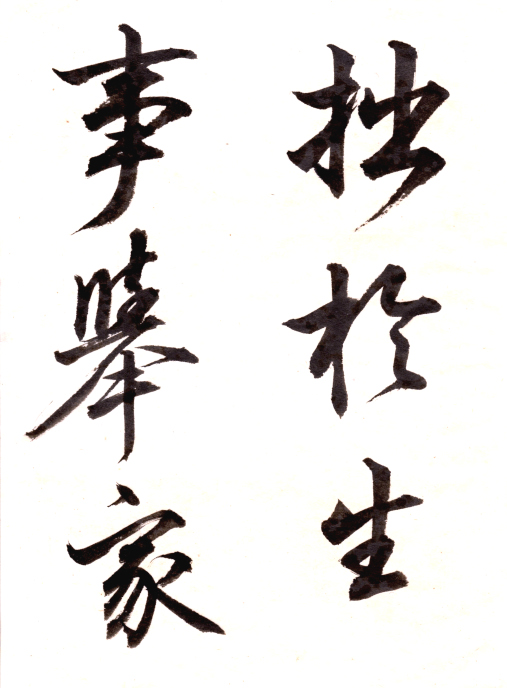 拙於生
事舉家